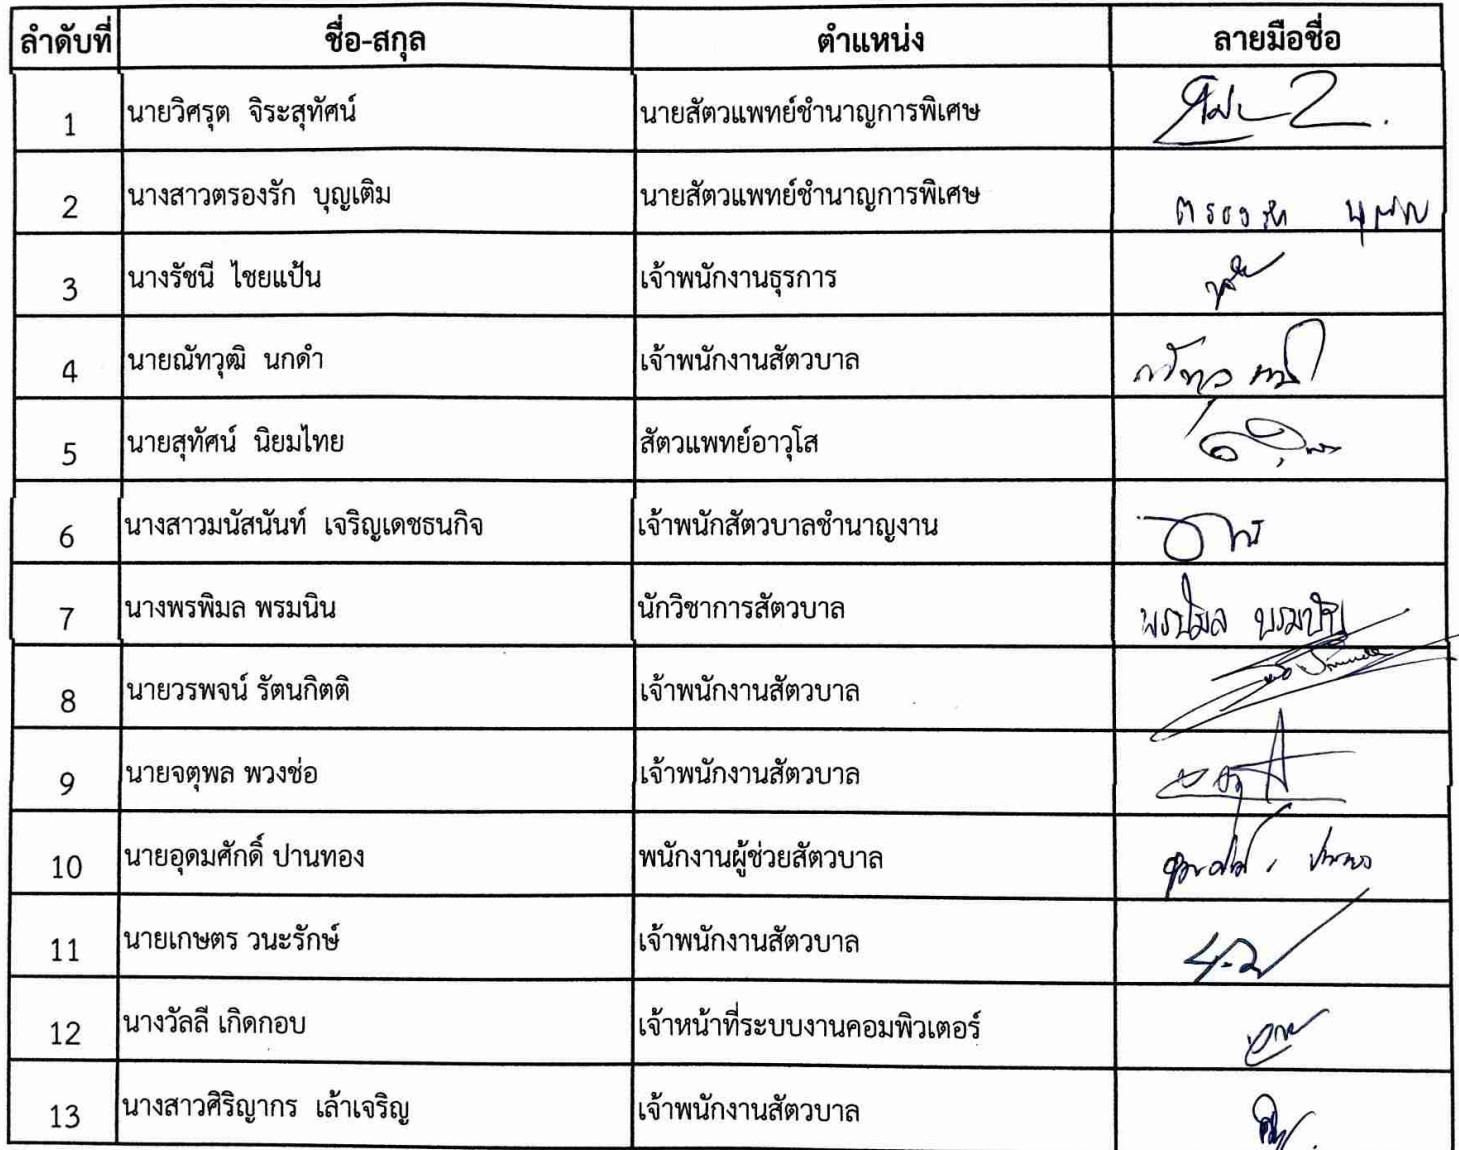 ลำดับที่ ชื่อ-สกุล ตำแหน่ง ลายมือชื่อ
1 นายวิศรุต จิระสุทัศน์ นายสัตวแพทย์ชำนาญการพิเศษ
2 นางสาวตรองรัก บุญเติม นายสัตวแพทย์ชำนาญการพิเศษ
3 นางรัชนี ไชยแป้น เจ้าพนักงานธุรการ
4 นายณัทวุฒิ นกดำ เจ้าพนักงานสัตวบาล
5 นายสุทัศน์ นิยมไทย สัตวแพทย์อาวุโส
6 นางสาวมนัสนันท์ เจริญเดชธนกิจ เจ้าพนักสัตวบาลชำนาญงาน
7 นางพรพิมล พรมนิน นักวิชาการสัตวบาล
8 นายวรพจน์ รัตนกิตติ เจ้าพนักงานสัตวบาล
9 นายจตุพล พวงช่อ เจ้าพนักงานสัตวบาล
10 นายอุดมศักดิ์ ปานทอง พนักงานผู้ช่วยสัตวบาล
11 นายเกษตร วนะรักษ์ เจ้าพนักงานสัตวบาล
12 นางวัลลี เกิดกอบ เจ้าหน้าที่ระบบงานคอมพิวเตอร์
13 นางสาวศิริญากร เล้าเจริญ เจ้าพนักงานสัตวบาล